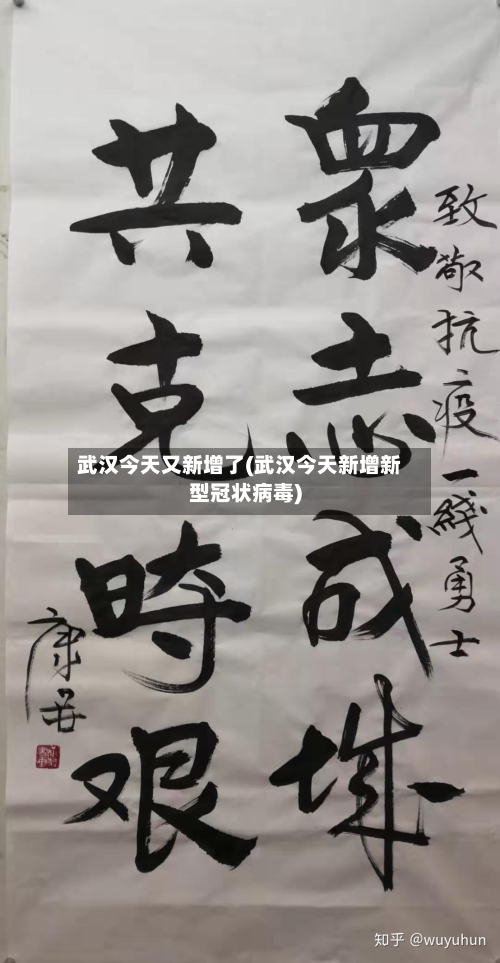 致敬抗疫一綫勇士
眾志成城
共克時艰
康
武汉今天又新增了(武汉今天新增新
型冠状病毒)
知乎 @wuyuhun